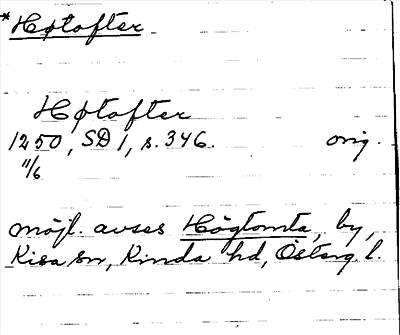 *Høtofter
Høtofter
1250, SD 1, s. 346. orig.
11/6
möjl. avses Högtomta, by,
Kisa sn, Kinda hd, Österg. l.